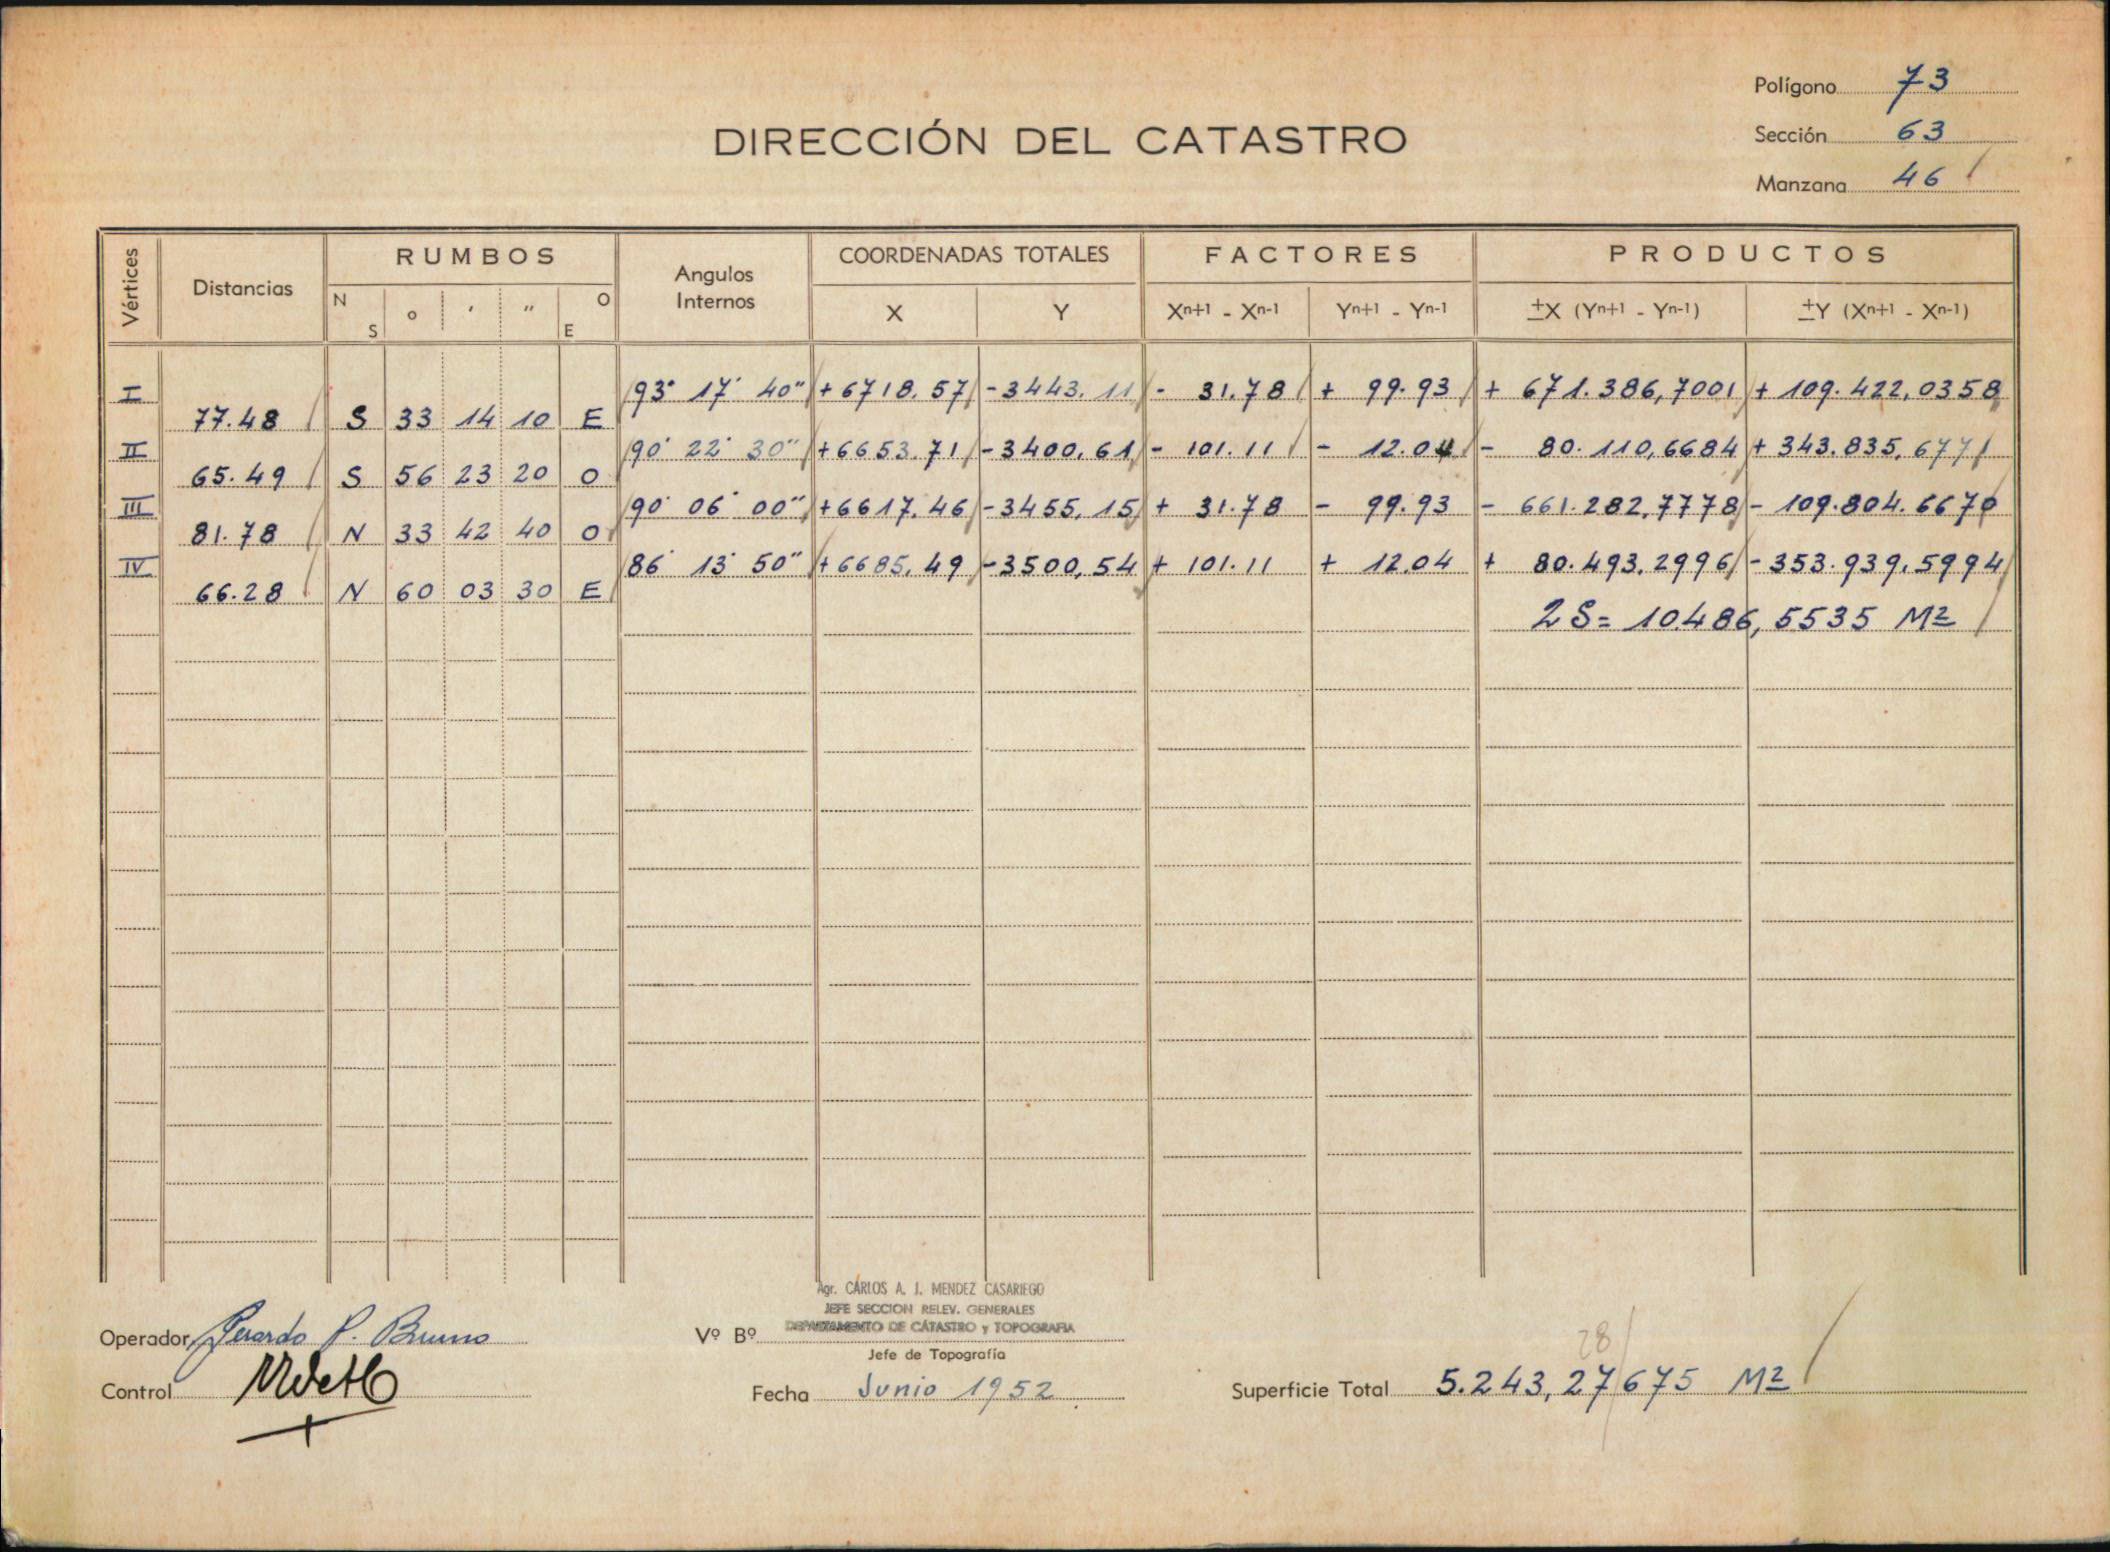 Polígono 73
DIRECCIÓN DEL CATASTRO
Sección 63
Manzana 46
Vértices Distancias RUMBOS Angulos Internos COORDENADAS TOTALES FACTORES PRODUCTOS
N S o ' " O E X Y Xn+1 - Xn-1 Yn+1 - Yn-1 ±X (Yn+1 - Yn-1) ±Y (Xn+1 - Xn-1)
I 93° 17' 40" +6718.57 -3443.11 - 31.78 + 99.93 + 671.386,7001 + 109.422,0358
77.48 S 33 14 10 E
II 90° 22' 30" +6653.71 -3400,61 - 101.11 - 12.04 - 80.110,6684 + 343.835,6771
65.49 S 56 23 20 O
III 90° 06' 00" +6617.46 -3455,15 + 31.78 - 99.93 - 661.282,7778 - 109.804.6670
81.78 N 33 42 40 O
IV 86° 13' 50" +6685,49 -3500,54 + 101.11 + 12.04 + 80.493,2996 - 353.939,5994
66.28 N 60 03 30 E
2 S= 10.486,5535 M2
Agr. CARLOS A. J. MENDEZ CASARIEGO
JEFE SECCION RELEV. GENERALES
DEPARTAMENTO DE CATASTRO y TOPOGRAFIA
Operador Gerardo P. Bruno Vº Bº
Jefe de Topografía
28
Control Fecha Junio 1952 Superficie Total 5.243,27675 M2